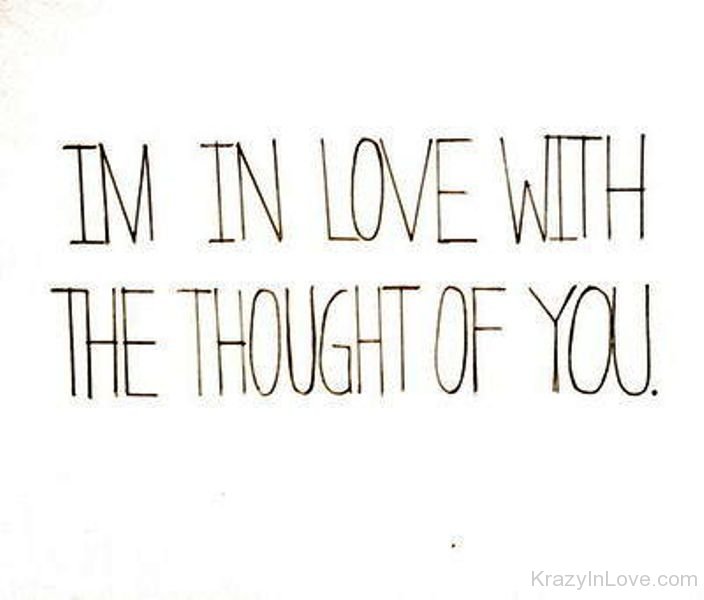 IM IN LOVE WITH
THE THOUGHT OF YOU.
KrazyInLove.com